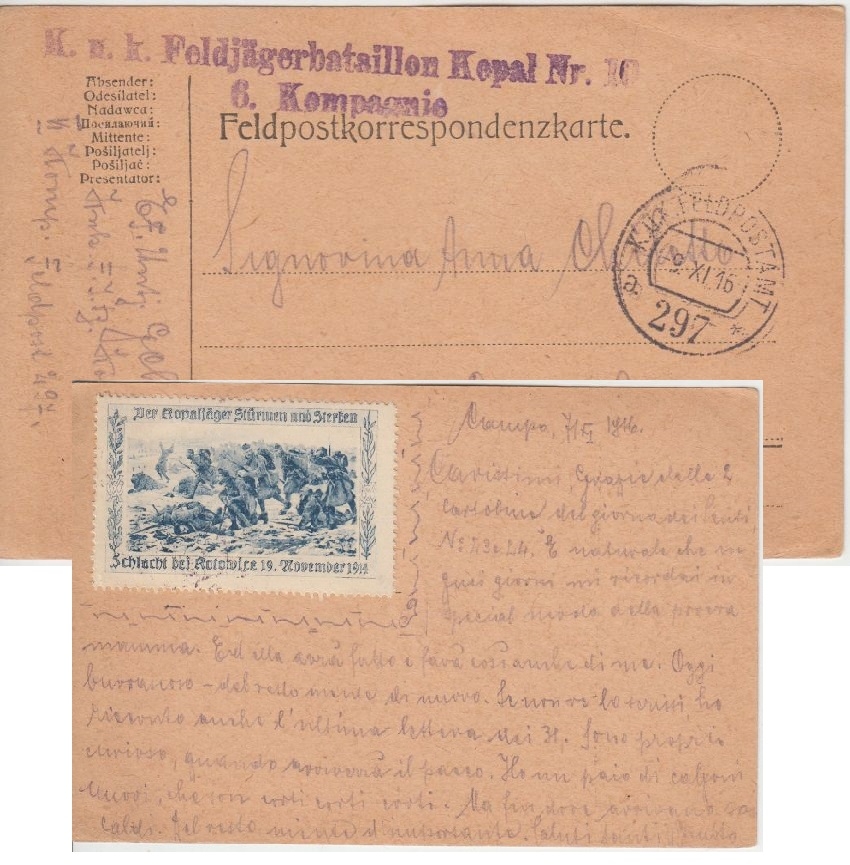 K. u. k. Feldjägerbataillon Kopal Nr. 10
6. Kompagnie
Absender:
Odesilatel:
Nadawca:
Посилаючий:
Mittente:
Pošiljatelj:
Pošiljač:
Presentator:
Feldpostkorrespondenzkarte.
Signorina Anna
K.u.K. FELDPOSTAMT
9. XI. 16
a
297
*
Komp. Feldpost 297.
Der Kopaljäger Stürmen und Sterben
Schlacht bei Kotowice 19. November 1914
Campo, 7/XI 1916.
Carissimi, Grazie delle 2
cartoline da giorno dei Santi
No 23 e 24. È naturale che
giorni mi ricordai in
special della povera
mamma. Ed ella avrà fatto e farà così anche di me. Oggi
burrascoso - del resto niente di nuovo. Se non ve lo scrissi, ho
riscontro anche l'ultima lettera dei 31. Sono proprio
curioso, quando arriverà il pacco. Ho un paio di calzoni
nuovi, che son corti corti corti. Ma fin dove arrivano
Del resto niente d'importante. Saluti